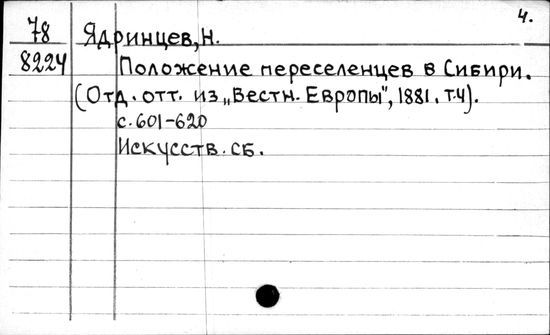 4.
78 Ядринцев, Н.
8224 Положение переселенцев в Сибири.
(Отд. отт. из „Вестн. Европы", 1881. т.4).
с. 601-620
Искусств. сб.